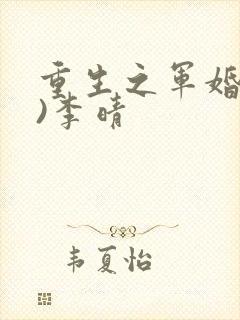 重生之军婚
)李晴
韦夏怡